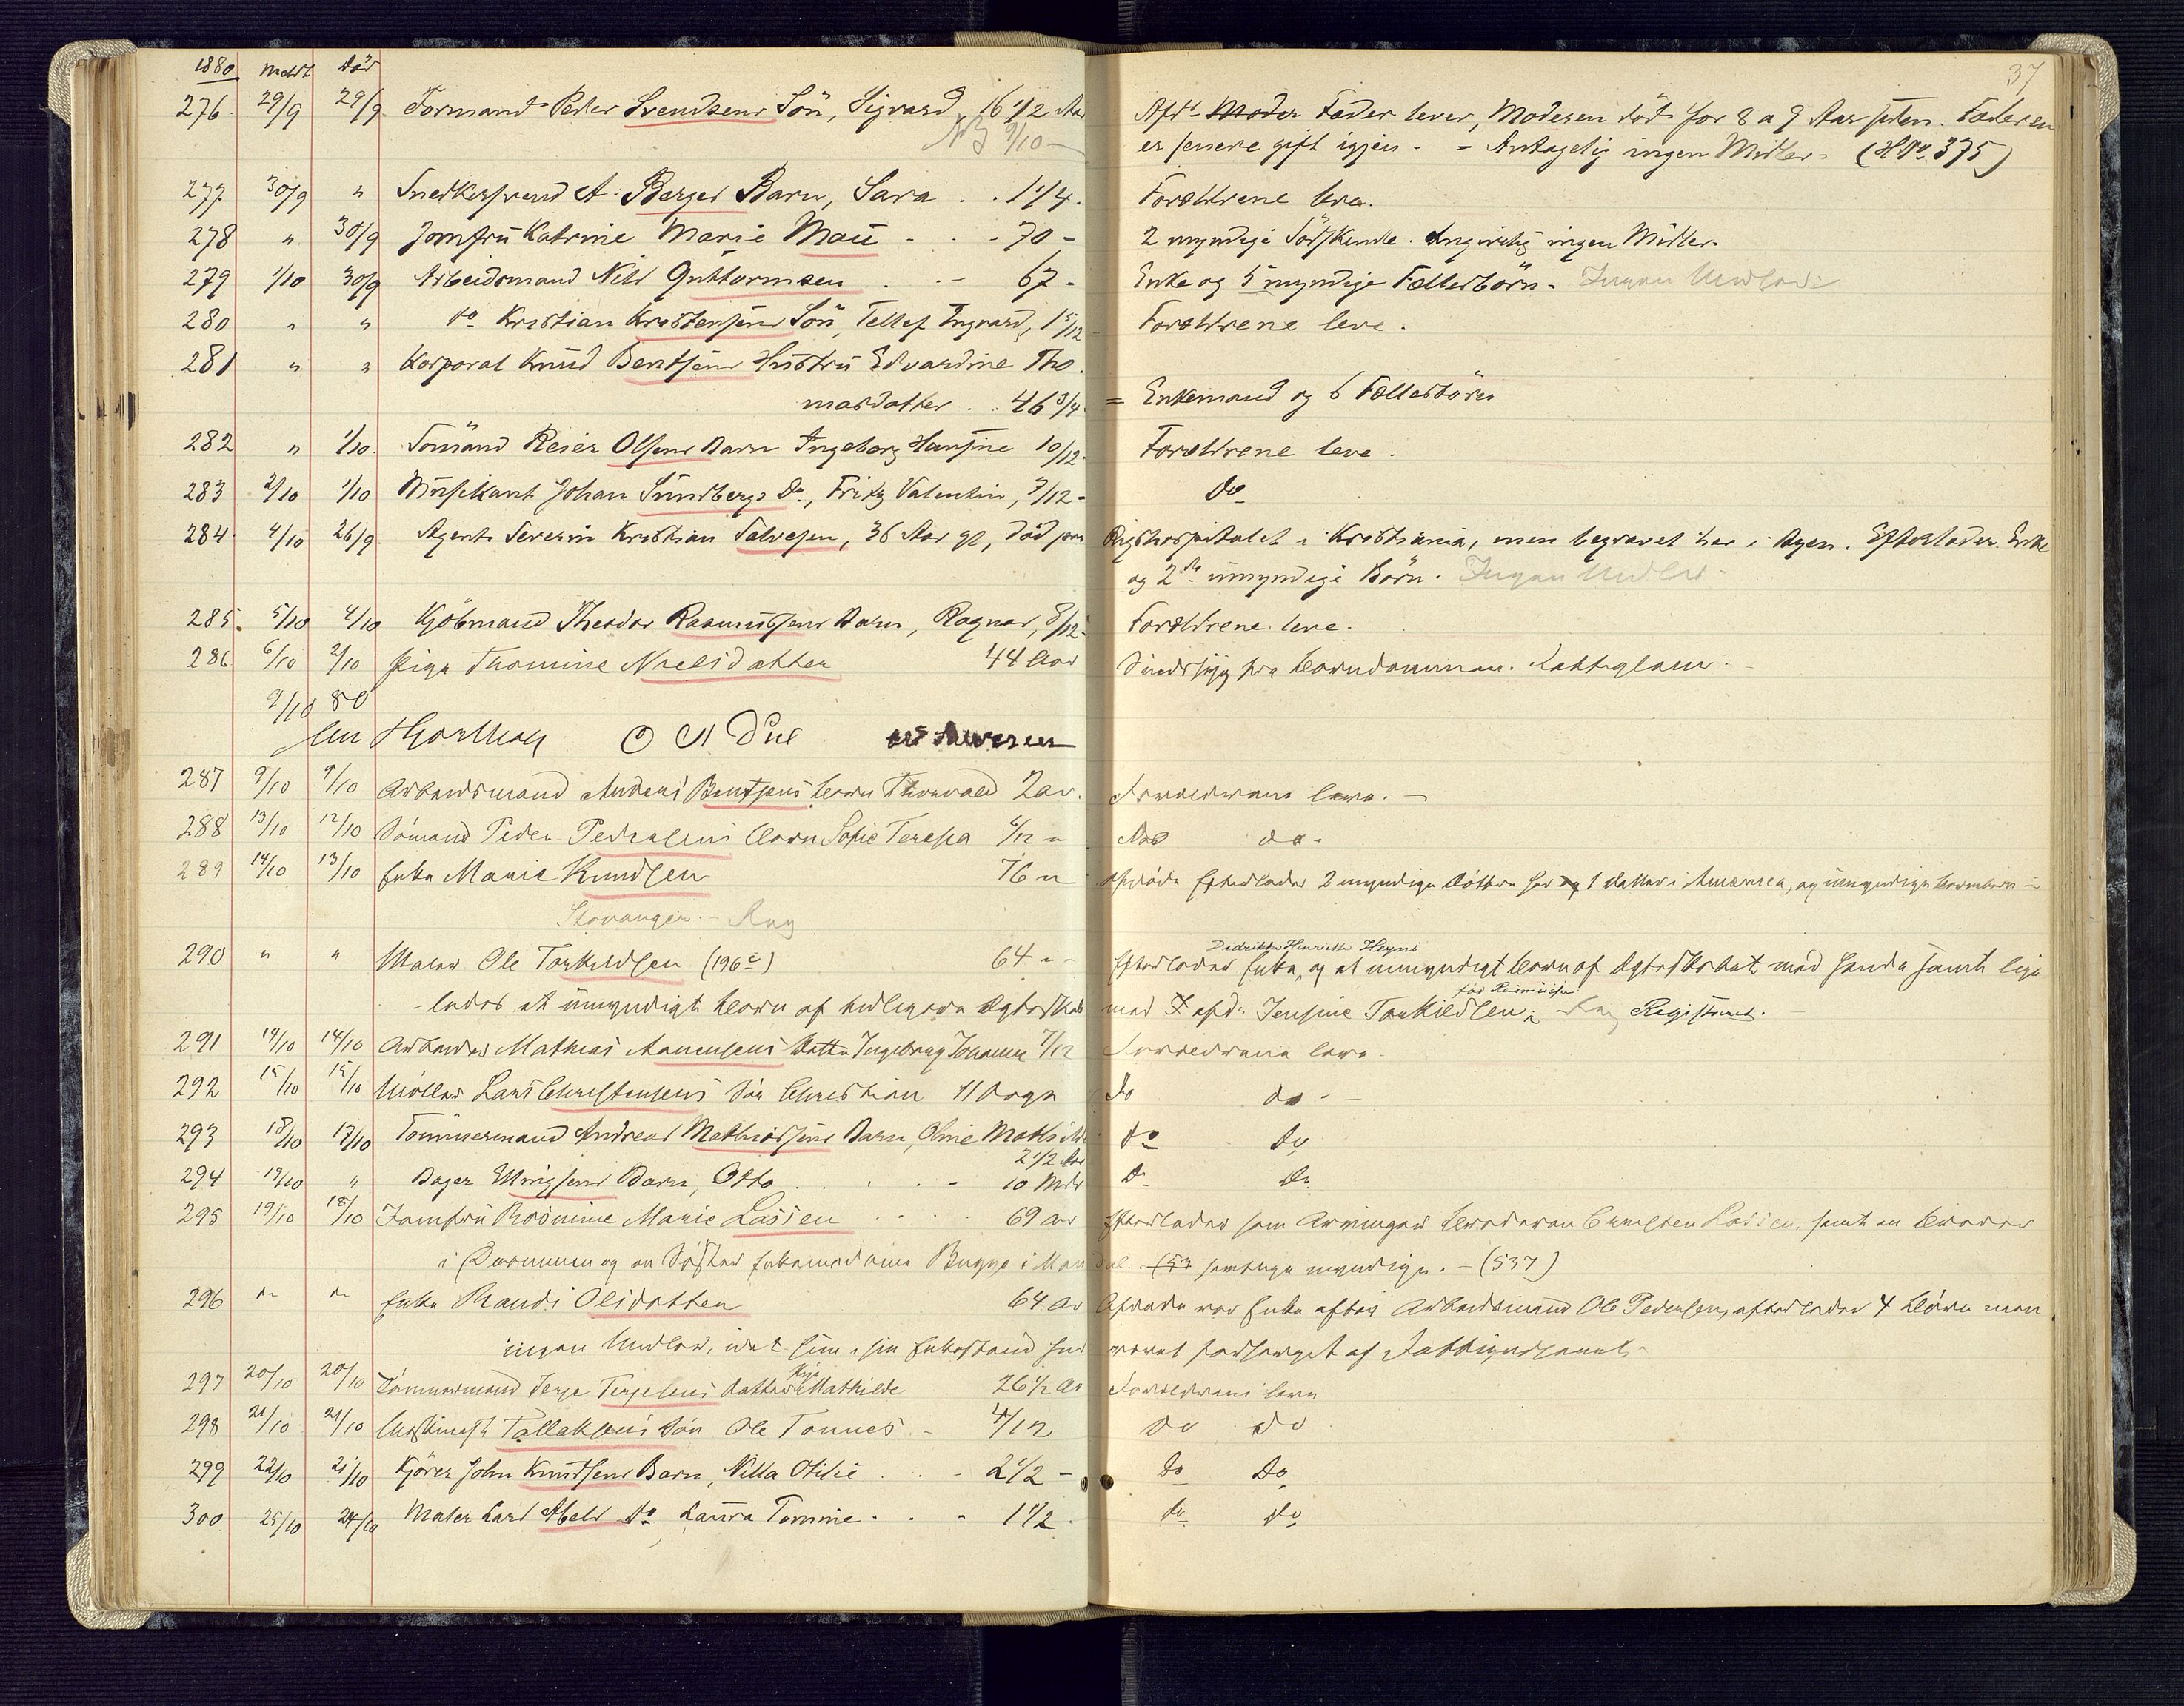 37
1880 Meldt Död
276. 29/9 29/9. Formand Peder Svendsens Sön, Sigvard 16 1/2 Aar Afd. Moder Fader lever, Moderen död for 8 a 9 Aar siden. Faderen
9/10 er senere gift igjen. - Antagelig ingen Midler. (H No. 375)
277. 30/9 " Snedkersvend A. Berges Barn, Sara . . 1 1/4. Forældrene leve.
278 " 30/9 Jomfru Katrine Marie Mau - . . - 70 - 2 myndige Södskende. Angivelig ingen Midler.
279 1/10 30/9 Arbeidsmand Nils Guttormsen . . - 67 - Enke og 5 myndige Fællesbörn. Ingen Midler
280 " " do Kristian Kristensens Sön, Tellef Ingvard, 1 5/12 - Forældrene leve.
281 " " Korporal Knud Bentsens Hustru Edvardine Tho.
masdatter . . 46 3/4. = Enkemand og 6 Fællesbörn
282 " 1/10. Sömand Reier Olsens Barn Ingeborg Hansine 10/12. Forældrene leve.
283 2/10 1/10 Musikant Johan Sundbergs Do., Fritz Valentin, 7/12 - Do
284. 4/10 26/9 Agent Severin Kristian Salvesen, 36 Aar gl, död paa Rigshospitalet i Kristiania, men begravet her i Byen. Efterlader Enke
og 2de umyndige Börn. Ingen Midler -
285. 5/10 4/10 Kjöbmand Theodor Rasmussens Barn, Ragnar, 8/12. Forældrene leve.
286 6/10 2/10 Pige Thomine Nielsdatter 44 Aar Sindssyg fra Barndommen. Fattiglem. -
9/10 80
O N Due
287 9/10 9/10 Arbeidsmand Anders Bentsens barn Thorvald 2 aar. Forældrene leve. -
288 13/10 12/10 Sömand Peder Pedersens barn Sofie Teresia 6/12 " do do.
289 14/10 13/10 Enke Marie Knudsen 76 " Afdöde Efterlader 2 myndige Döttre her og 1 datter i Amerika, og umyndige barnebørn i
Stavanger. -
290 " " Maler Ole Torkildsen (196 c) 64 " - Efterlader Enke, Didrikke Henriette Heyns og et umyndigt barn af Ægteskabet med hende samt lige
- ledes et umyndigt barn af tidligere Ægteskab med afd. Jensine Torkildsen, föd Rasmussen Registreret.
291 14/10 14/10 Arbeider Mathias Aanensens Datter Ingeborg Johanne 7/12 Forældrene leve.
292 15/10 15/10 Möller Lars Christensens Sön Christian 11 Dage do do. -
293 18/10 17/10 Tömmermand Andreas Mathiassens Barn, Oline Mathilde 2 1/2 Aar do do
294 19/10 " Bager Morigsens Barn, Otto . . . - 10 Mdr Do Do
295 19/10 18/10 Jomfru Rosmine Marie Lassen . . . . 69 Aar Efterlader som Arvinger Broderen Carsten Lassen, samt en Broder
i Drammen og en Söster Enkemadame Bugge i Man dal. (53 samtlige myndige. - (537)
296 do do Enke Randi Olsdatter 64 Ar Afdøde var Enke efter Arbeidsmand Ole Pedersen, efterlader 4 börn men
ingen Midler, idet hun i sin Enkestand har været forsørget af Fattigvæsenet.
297 20/10 20/10 Tömmermand Terje Terjesens datter Mathilde 26 1/2 Ar Forældrene leve
298 21/10 21/10 Maskinist Tallaksens Sön Ole Tonnes - 4/12 do do
299 22/10 21/10 Kjörer John Knudsens Barn, Nilla Otilie . . - 2 1/2 - do do
300 25/10 24/10 Maler Karl Abels do Laura Tomine . . - 1 1/2 . do do